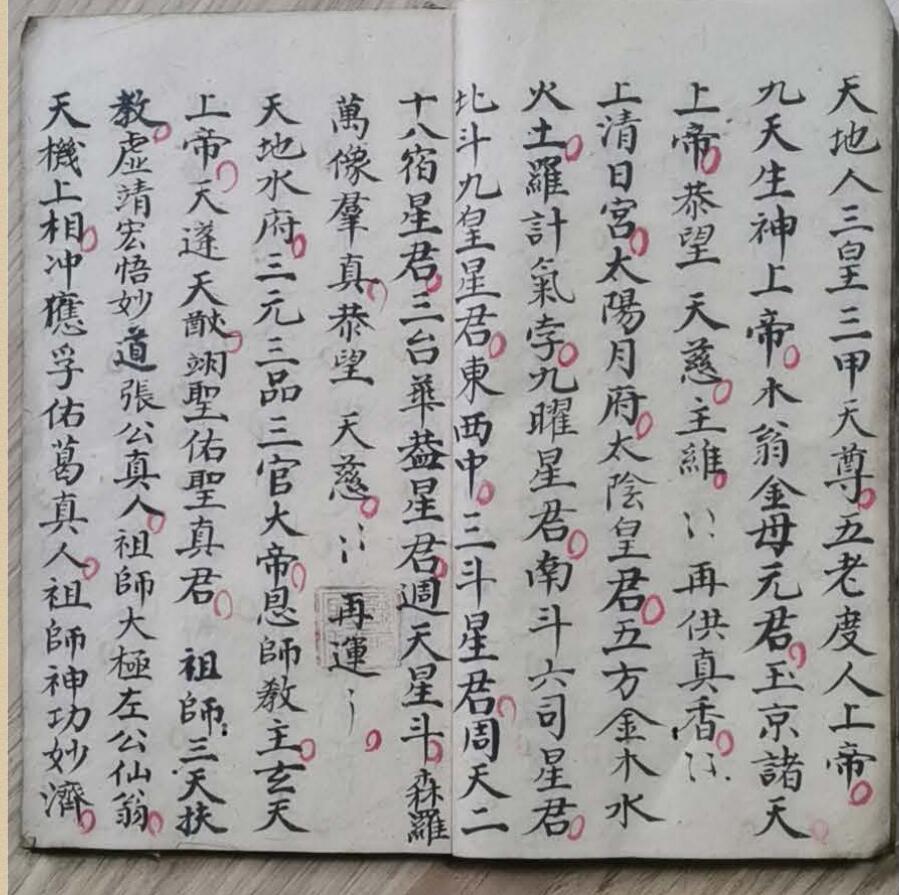 天地人三皇三甲天尊五老度人上帝
九天生神上帝木翁金母元君玉京諸天
上帝恭望 天慈主維〻再供真香〻
上清日宮太陽月府太陰皇君五方金木水
火土羅計氣孛九曜星君南斗六司星君
北斗九皇星君東西中三斗星君周天二
十八宿星君三台華蓋星君週天星斗森羅
萬像羣真恭望 天慈〻再運〻
天地水府三元三品三官大帝恩師教主玄天
上帝天蓬天猷翊聖佑聖真君 祖師三天扶
教虛靖宏悟妙道張公真人祖師大極左公仙翁
天機上相冲應孚佑葛真人祖師神功妙濟